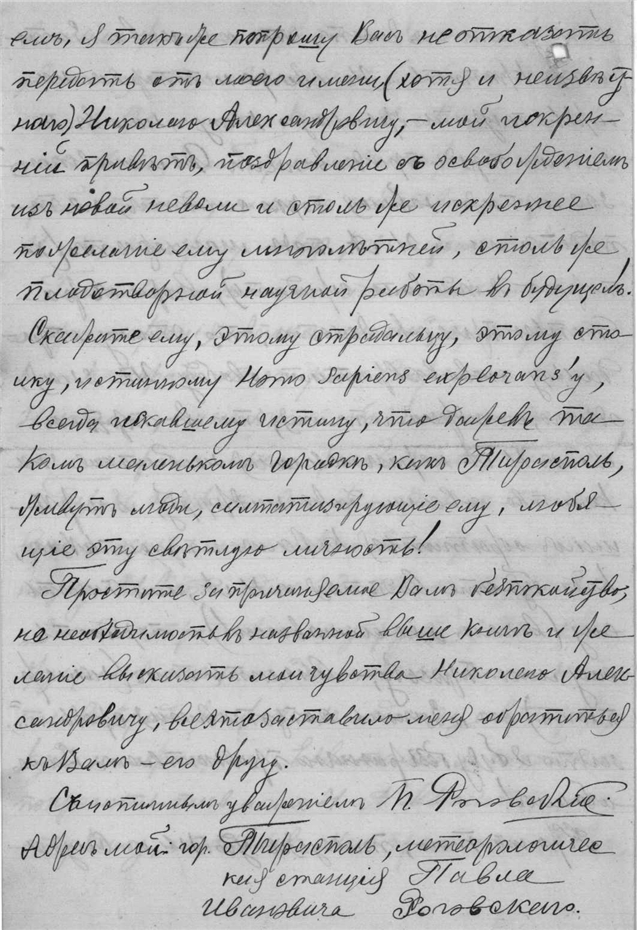 емъ, я также попрошу Васъ не отказать
передать отъ моего имени (хотя и неизвѣст-
наго) Николаю Александровичу, – мой искрен-
ній привѣтъ, поздравленіе съ освобожденіемъ
изъ новой неволи и столь же искреннее
пожеланіе ему многолѣтней, столь же
плодотворной научной работы въ будущемъ!
Скажите ему, этому страдальцу, этому сто-
ику, истинному Homo Sapiens explorans'у,
всегда искавшему истину, что даже въ та-
комъ маленькомъ городкѣ, какъ Тирасполь,
живутъ люди, симпатизирующіе ему, любя-
щіе эту свѣтлую личность!
Простите за причиняемое Вамъ безпокойство,
но необходимость въ названной выше книгѣ и же-
ланіе высказать мои чувства Николаю Алек-
сандровичу, все это заставило меня обратиться
къ Вамъ – его другу.
Съ истиннымъ уваженіемъ П. Роговскій.
Адресъ мой: гор. Тирасполь, метеорологичес
кая станція Павла
Ивановича Роговскаго.